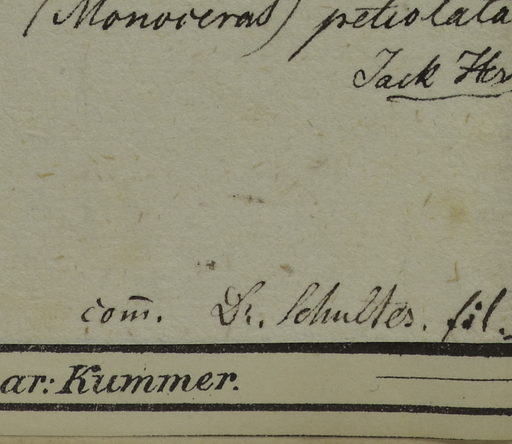 (Monoceras) petiolata
Jack Her
com̄. Dr. Schultes. fil.
ar: Kummer.